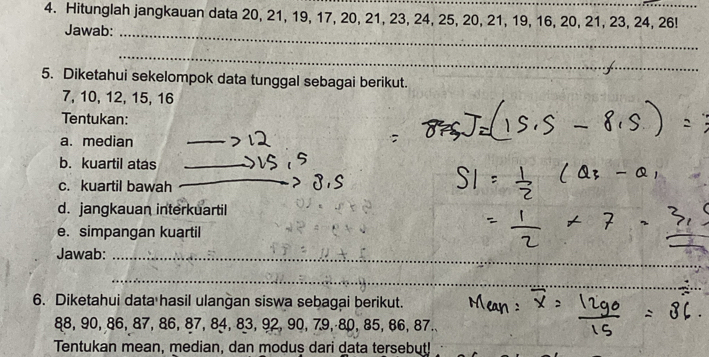 4. Hitunglah jangkauan data 20, 21, 19, 17, 20, 21, 23, 24, 25, 20, 21, 19, 16, 20, 21, 23, 24, 26!
Jawab:
5. Diketahui sekelompok data tunggal sebagai berikut.
7, 10, 12, 15, 16
Tentukan:
a. median → 12
b. kuartil atas → 15,5
c. kuartil bawah → 8,5
d. jangkauan interkuartil
e. simpangan kuartil
Jawab:
= J = (15.5 - 8,5) =
SI = 1/2 (Q3 - Q1
= 1/2 × 7 = 3,5
6. Diketahui data hasil ulangan siswa sebagai berikut.
88, 90, 86, 87, 86, 87, 84, 83, 92, 90, 79, 80, 85, 86, 87.
Tentukan mean, median, dan modus dari data tersebut!
Mean : x̄ = 1290/15 = 86.